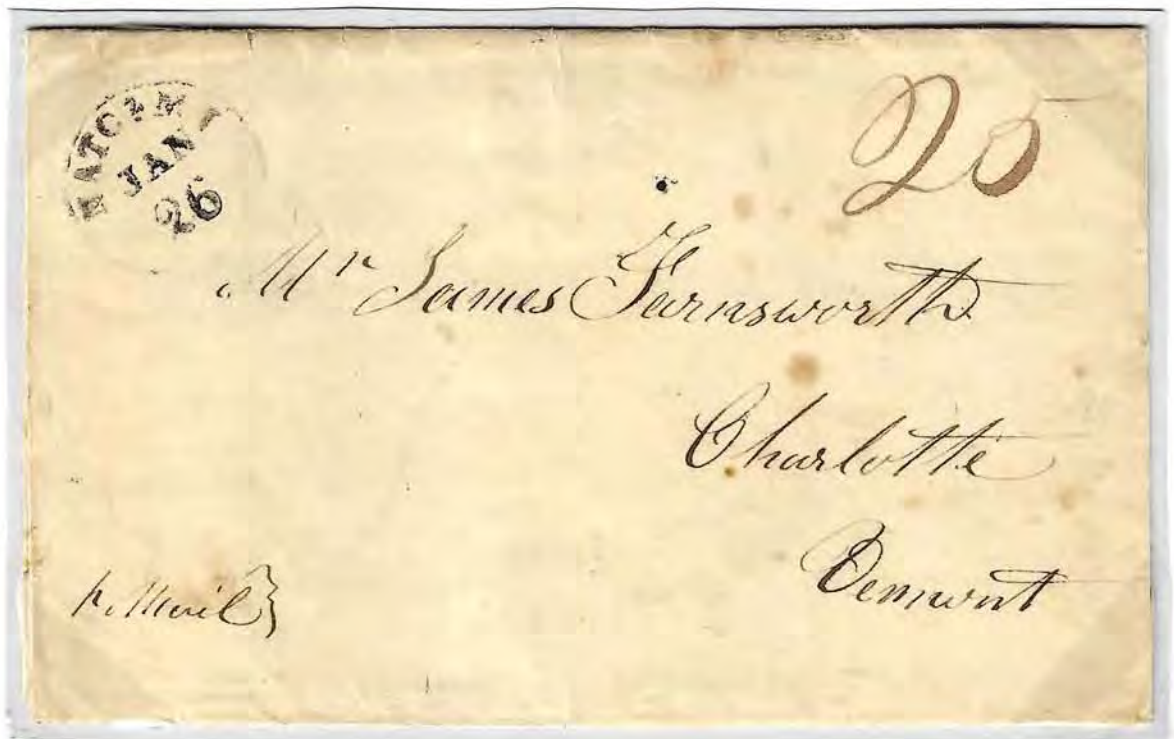 JAN
26
25
Mr James Farnsworth
Charlotte
Vermont
p. Mail